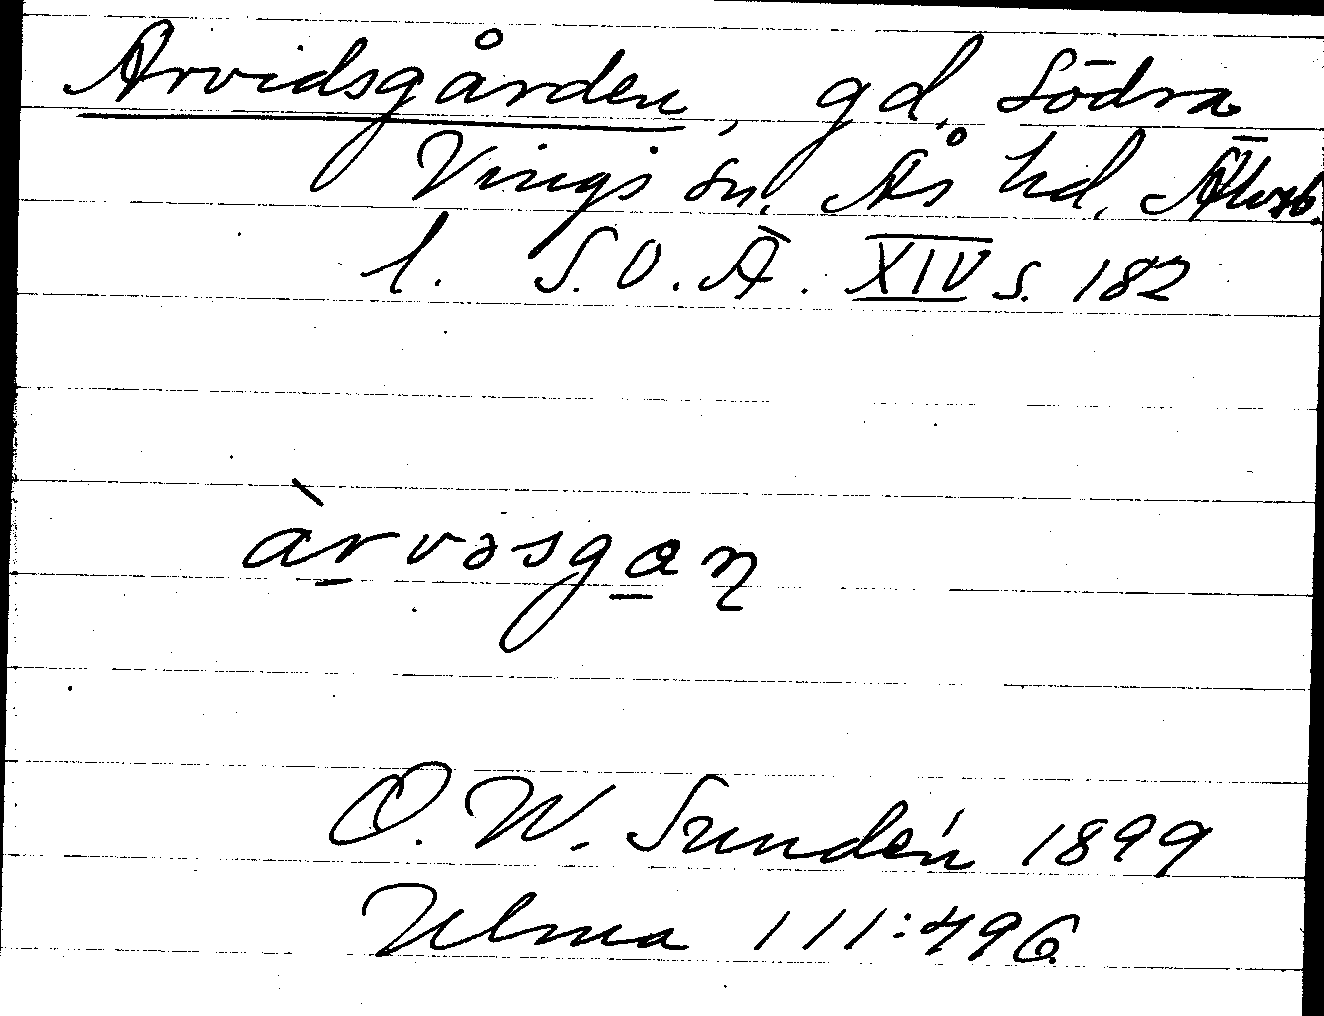 Arvidsgården, gd, Södra
Vings sn, Ås hd, Älvsb.
l. S.O.Ä. XIV s. 182
àrvəsgaɳ
O. W. Sundén 1899
Ulma 111:496